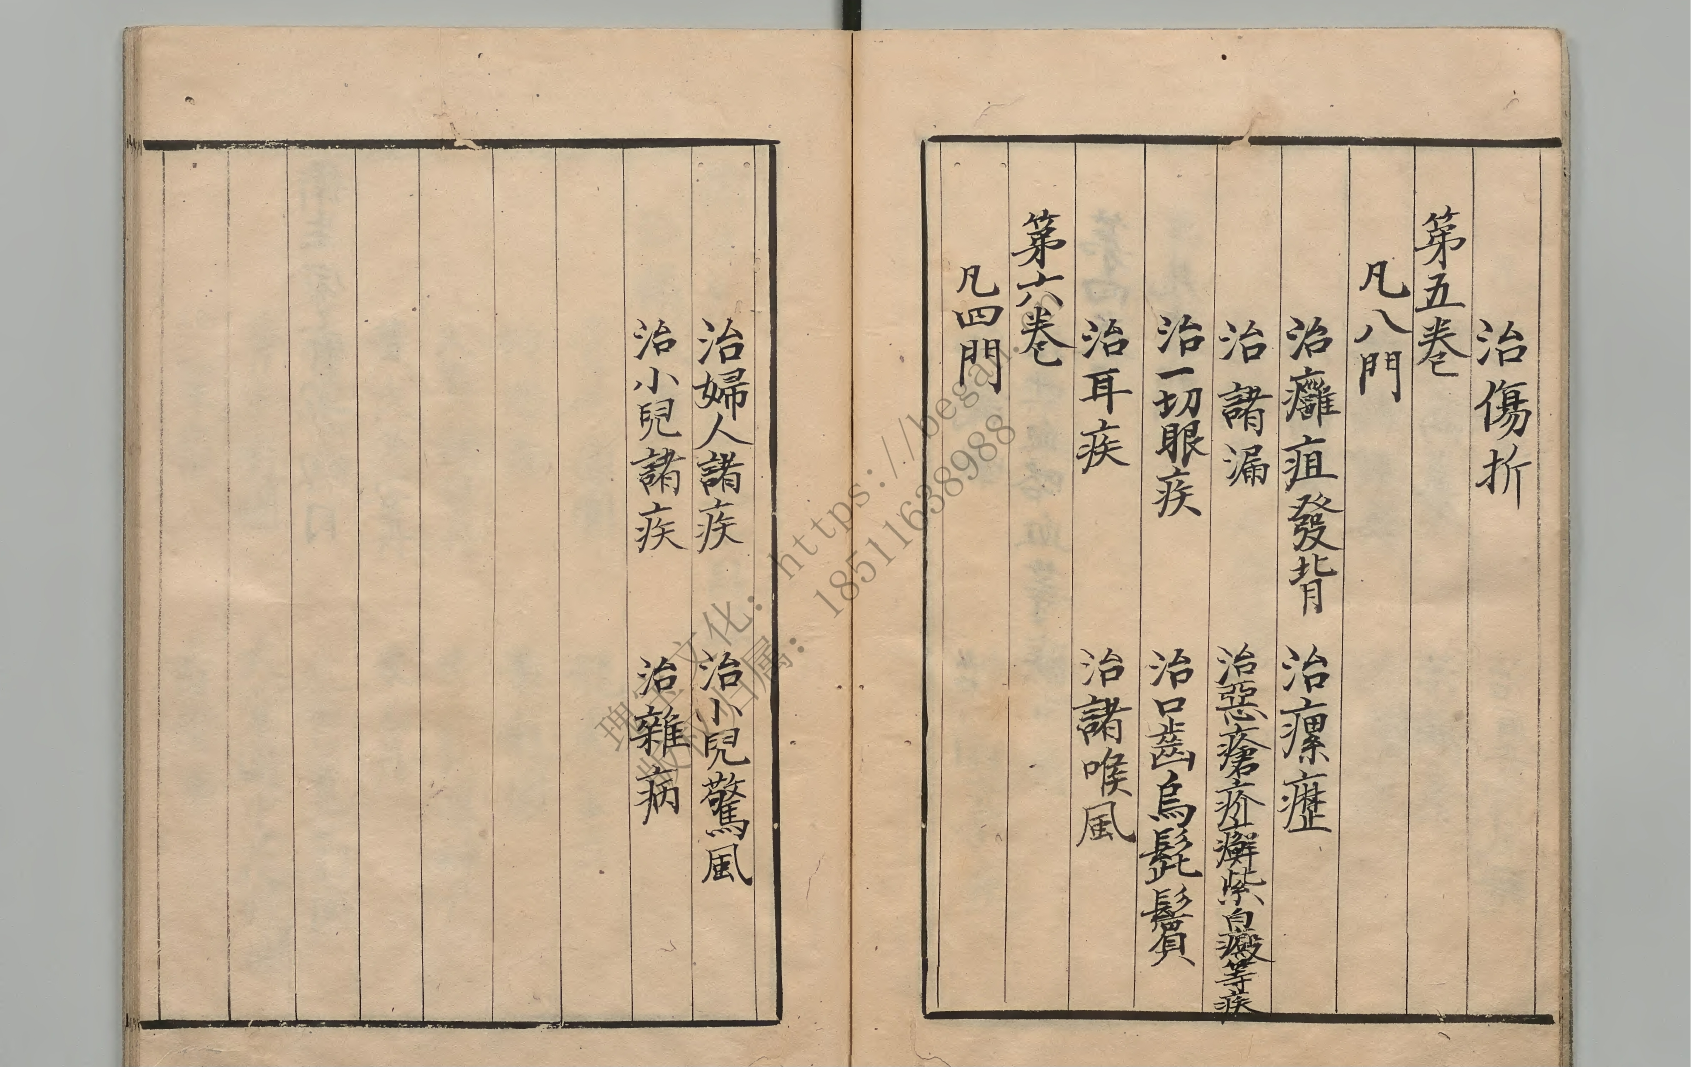 治傷折
第五卷
凡八門
治癰疽發背 治瘰癧
治諸漏 治惡瘡疥癬紫白癜等疾
治一切眼疾 治口齒烏髭鬢
治耳疾 治諸喉風
第六卷
凡四門
治婦人諸疾 治小兒驚風
治小兒諸疾 治雜病
文化：https://bega
归属：18511638988